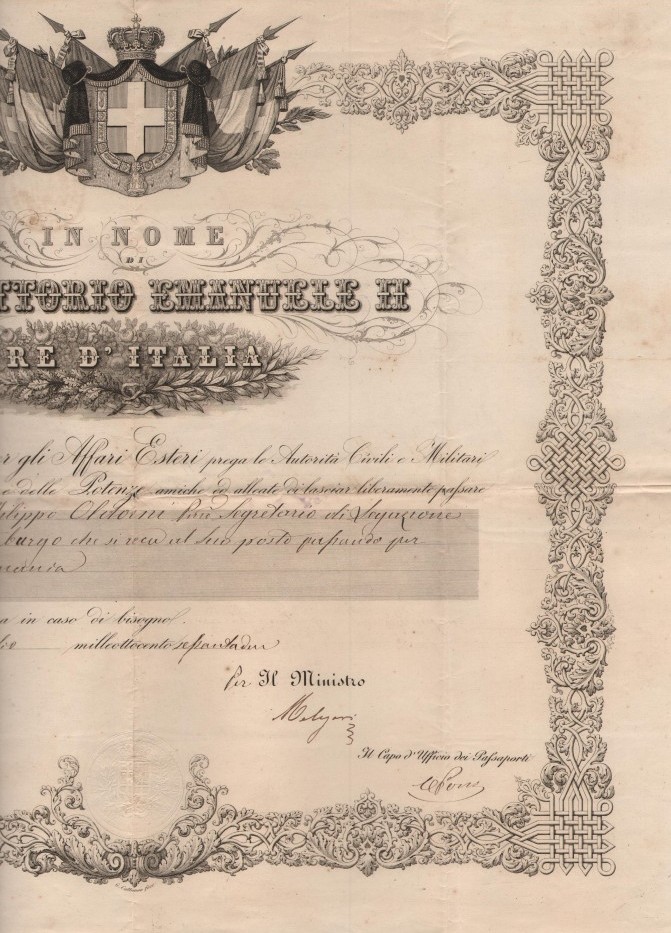 IN NOME
DI
TTORIO EMANUELE II
RE D'ITALIA
r gli Affari Esteri prega le Autorità Civili e Militari
e delle Potenze amiche ed alleate di lasciar liberamente passare
ilippo Segretario di Legazione
burgo che si reca al suo posto passando per
mania
a in caso di bisogno.
milleottocento settantadue
Per Il Ministro
Melegari
Il Capo d'Uffizio dei Passaporti